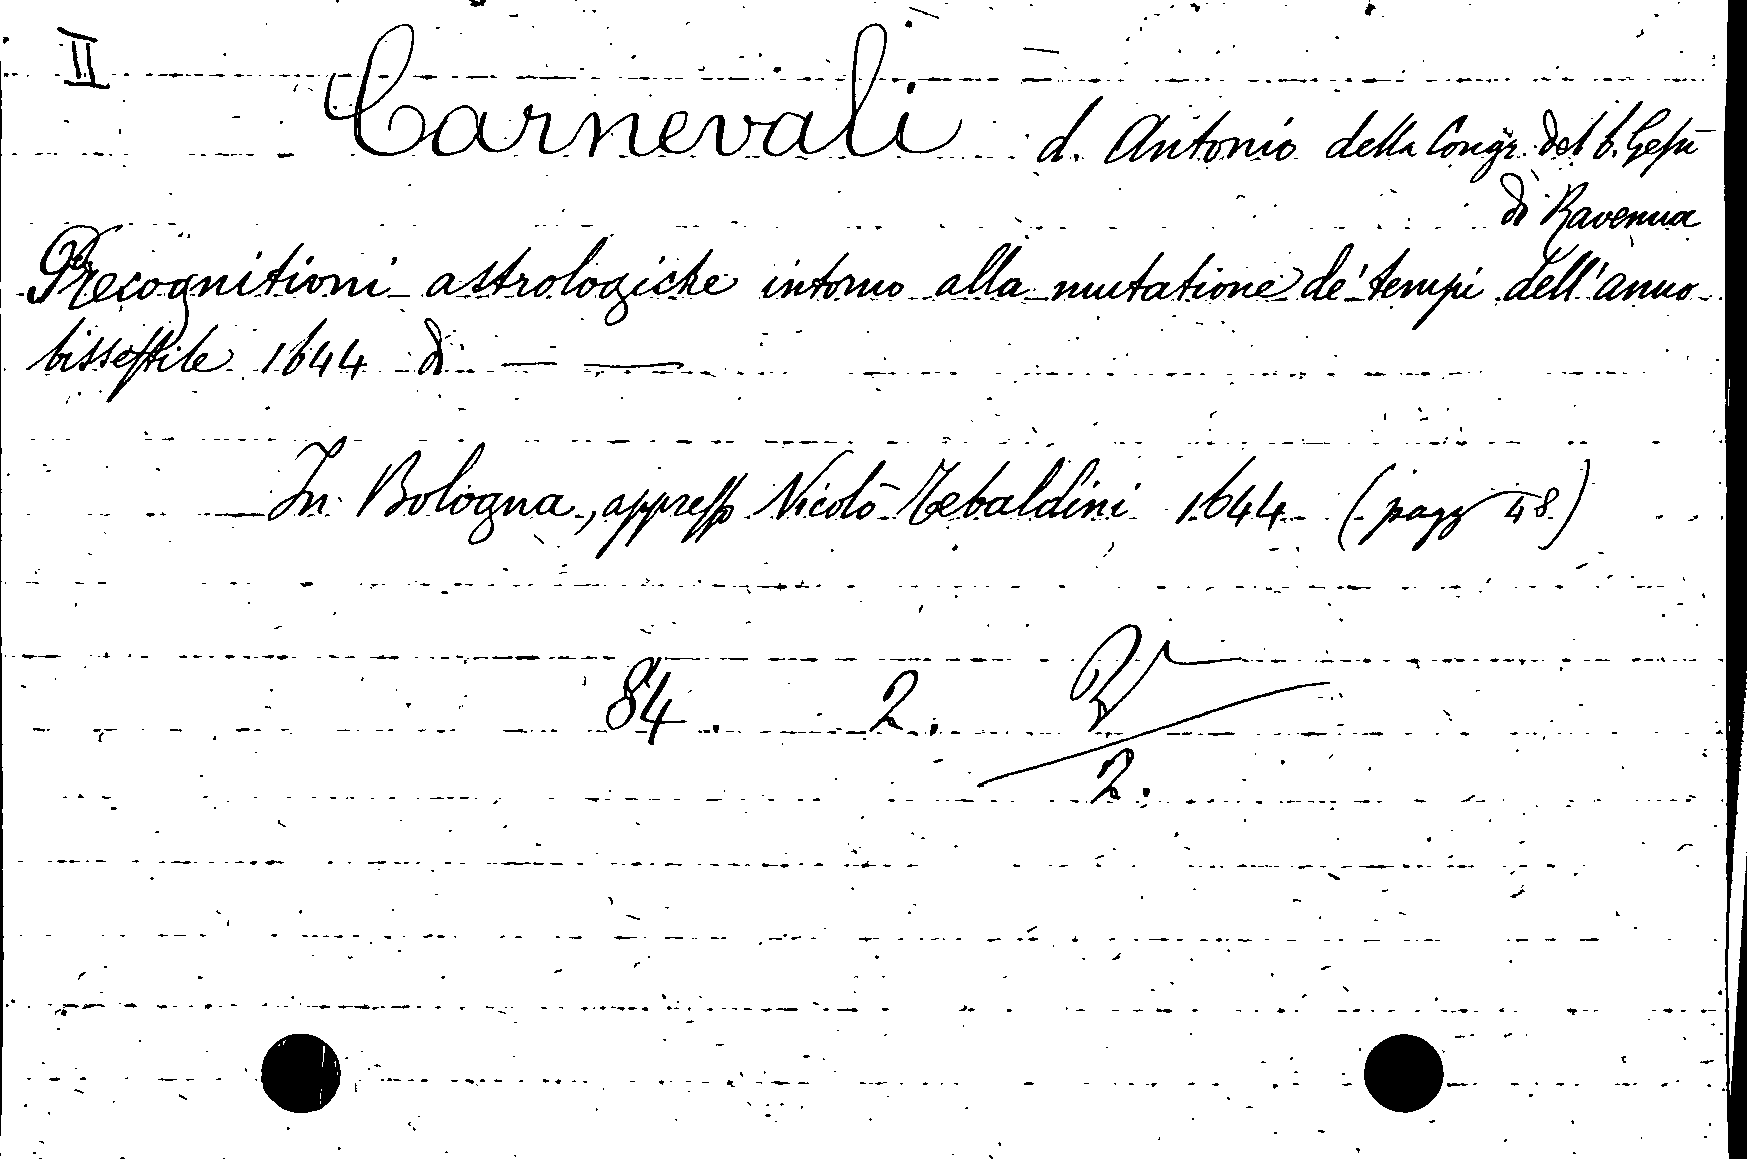 II
Carnevali d. Antonio della Congr. del b. Gesù
di Ravenna
Precognitioni astrologiche intorno alla mutatione de' tempi dell'anno
bissestile 1644 di — —
In Bologna, appresso Nicolò Tebaldini 1644 (pagg 48)
84. 2.
2.